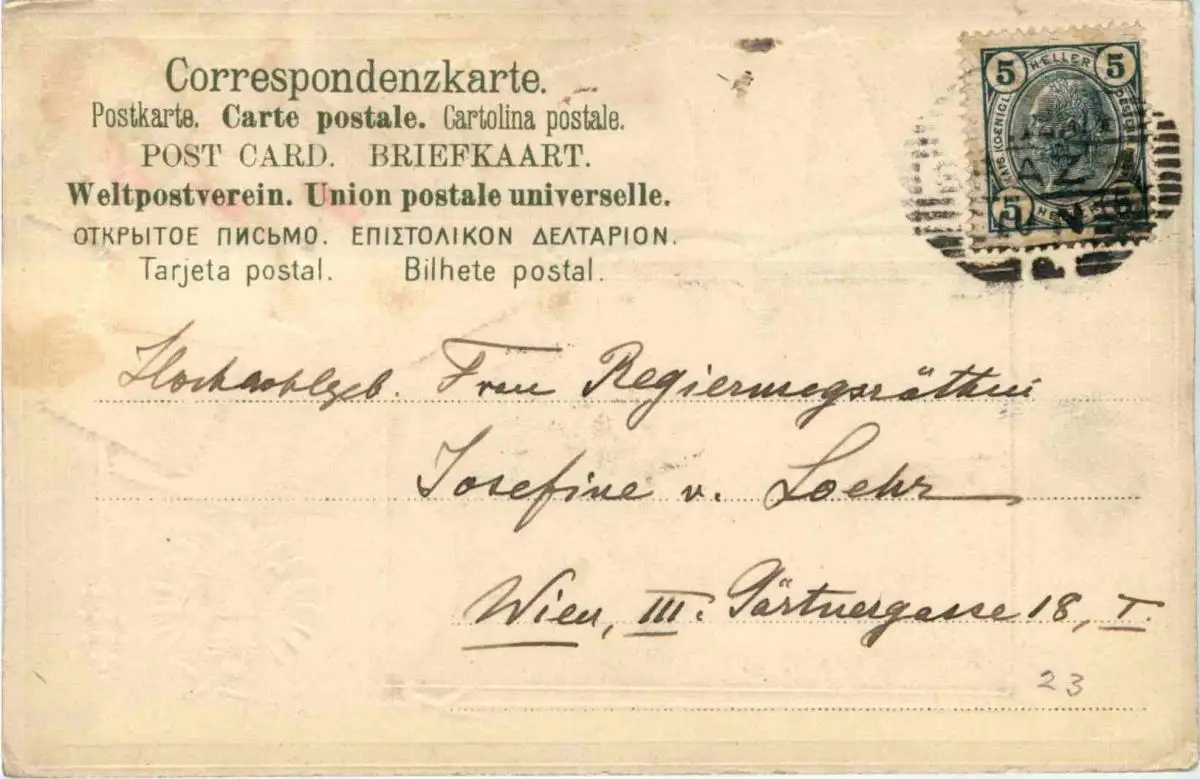 Correspondenzkarte.
Postkarte. Carte postale. Cartolina postale.
POST CARD. BRIEFKAART.
Weltpostverein. Union postale universelle.
ОТКРЫТОЕ ПИСЬМО. ΕΠΙΣΤΟΛΙΚΟΝ ΔΕΛΤΑΡΙΟΝ.
Tarjeta postal. Bilhete postal.
5 HELLER 5
5
Frau Regierungsräthin
Josefine v. Loehr
Wien, III. Gärtnergasse 18, I.
23